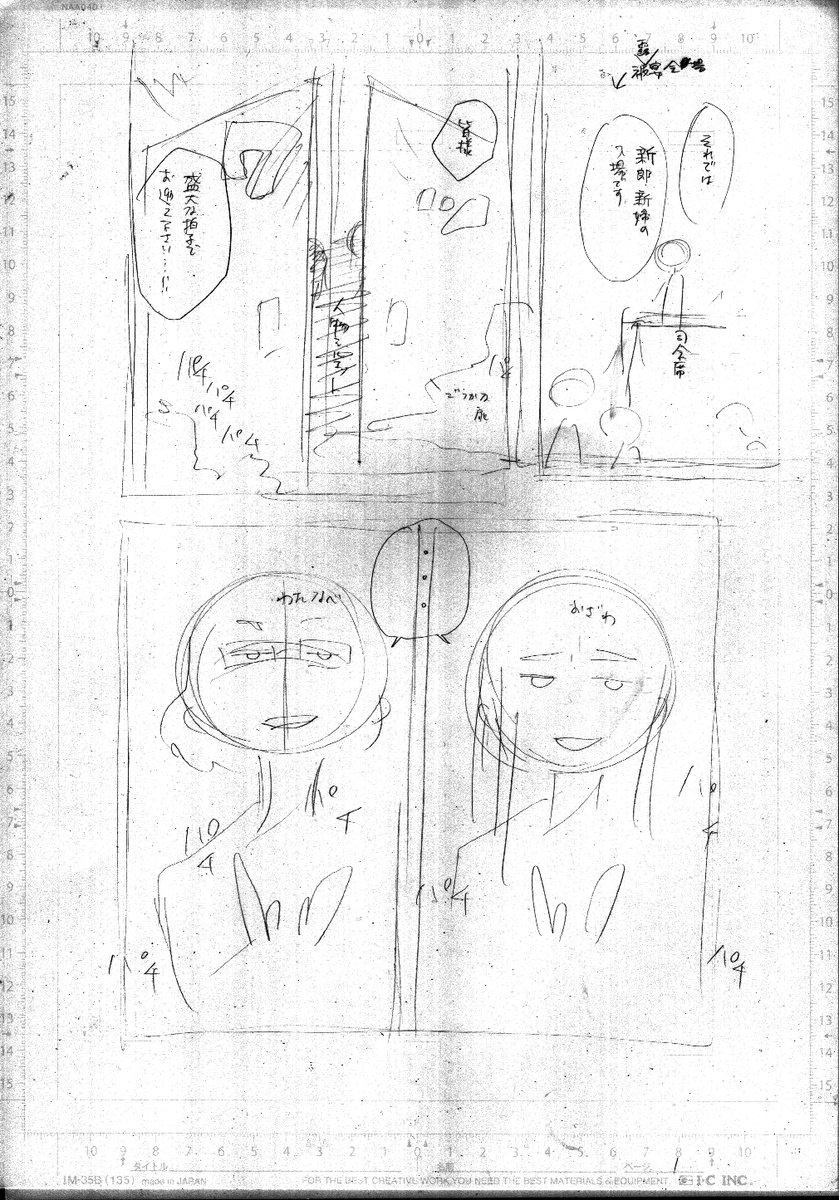 それでは
新郎新婦の
入場です
司会席
皆様
ごうかな
扉
パチ
人物シルエット
盛大な拍手で
お迎え下さい…!!
パチ
パチ
パチ
パチ
おざわ
パチ
パチ
パチ
わたなべ
パチ
パチ
パチ
タイトル
名前
ページ 1
IM-35B (135) made in JAPAN
FOR THE BEST CREATIVE WORK,YOU NEED THE BEST MATERIALS & EQUIPMENT.
I·C INC.